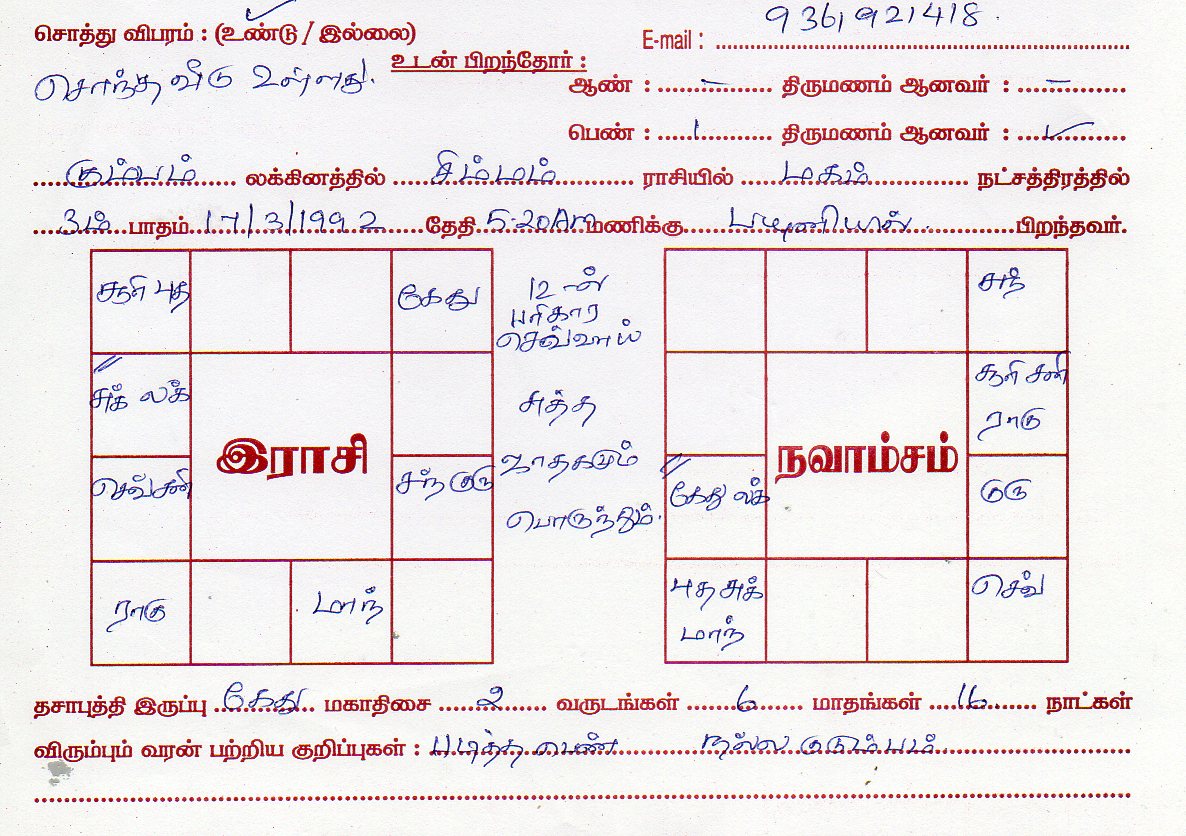 சொத்து விபரம் : (உண்டு / இல்லை) E-mail : 9361921418.
சொந்த வீடு உள்ளது.
உடன் பிறந்தோர் :
ஆண் : – திருமணம் ஆனவர் : –
பெண் : 1 திருமணம் ஆனவர் : ✓
கும்பம் லக்கினத்தில் சிம்மம் ராசியில் மகம் நட்சத்திரத்தில்
3ம் பாதம் 17/3/1992 தேதி 5.20Am மணிக்கு பிறந்தவர்.
சூரி புத
கேது
சுக் லக்
செவ் சனி
சந் குரு
ராகு
மாந்
இராசி
12-ன்
பரிகார
செவ்வாய்
சுத்த
ஜாதகமும்
பொருந்தும்.
சந்
சூரி சனி
ராகு
கேது லக்
குரு
புத சுக்
மாந்
செவ்
நவாம்சம்
தசாபுத்தி இருப்பு கேது மகாதிசை 2 வருடங்கள் 6 மாதங்கள் 16 நாட்கள்
விரும்பும் வரன் பற்றிய குறிப்புகள் : படித்த பெண் நல்ல குடும்பம்